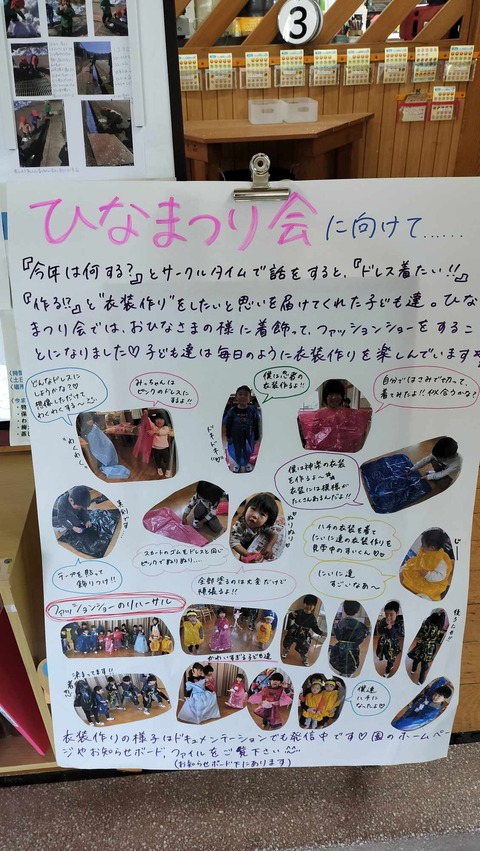 3
ひなまつり会に向けて……
『今年は何する?』とサークルタイムで話をすると、『ドレス着たい!!』
『作る!?』と"衣装作り"をしたいと思いを届けてくれた子ども達。ひな
まつり会では、おひなさまの様に着飾って、ファッションショーをするこ
とになりました♡子ども達は毎日のように衣装作りを楽しんでいます
どんなドレスに
しようかな?♡
想像しただけで
わくわくする〜
わくわく。
みっちゃんは
ピンクのドレスに
するよ!!
僕は忍者の
衣装作るよ!!
ドキドキ
自分ではさみで切って、
着てみたよ!!似合うかな?
僕は神楽の衣装
を作るよ〜
衣装には模様が
たくさんあるんだよ!!
真剣です…
テープを貼って
飾りつけ!!
スカートのゴムをドレスと同じ
ピンクでぬりぬり…
ぬりぬり
全部塗るのは大変だけど
頑張るよ!!
ハチの衣装を着て
にいに達の衣装作りを
見学中のすいくん♡
じーー
にいに達
すごいなあ〜
ファッションショーのリハーサル
かわいすぎる子ども達
決まってます!!
僕達
ハチに
なったよ♡
衣装作りの様子はドキュメンテーションでも発信中です♡園のホームペー
ジやお知らせボード、ファイルをご覧下さい
(お知らせボード下にあります)